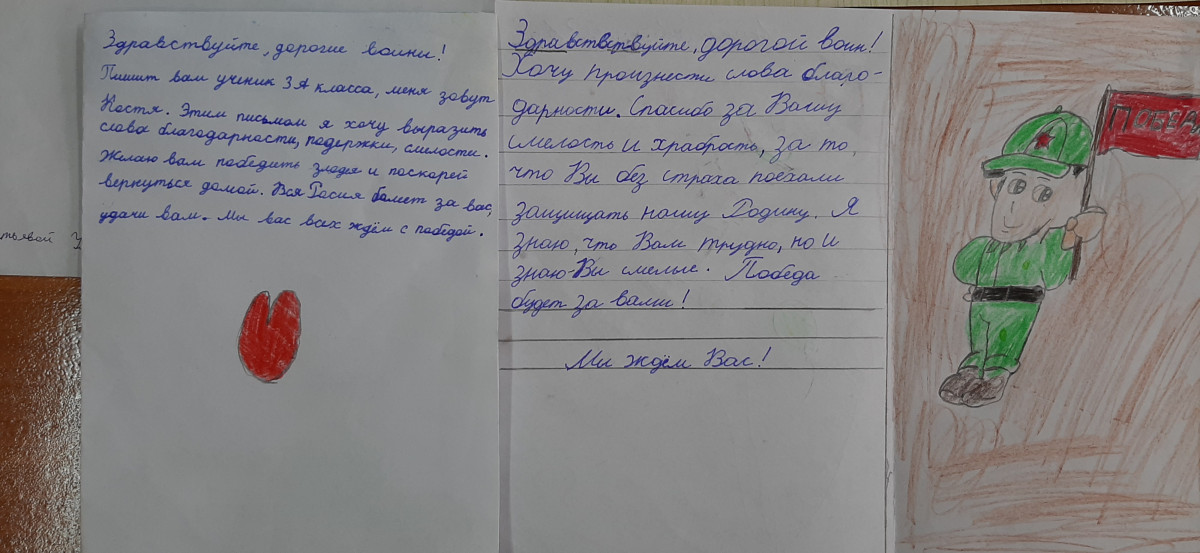 Здравствуйте, дорогие воины!
Пишит вам ученик 3А класса, меня зовут
Костя. Этим письмом я хочу выразить
слова благодарности, подержки, смелости.
Желаю вам победить злодея и поскорей
вернуться домой. Вся Росия болеет за вас,
удачи вам. Мы вас всех ждём с победой.
Здравствствуйте, дорогой воин!
Хочу произнести слова благо-
дарности. Спасибо за Вашу
смелость и храбрость, за то,
что Вы без страха поехали
защищать нашу Родину. Я
знаю, что Вам трудно, но и
знаю-Вы смелые. Победа
будет за вами!
Мы ждём Вас!
ПОБЕДА
тьевой